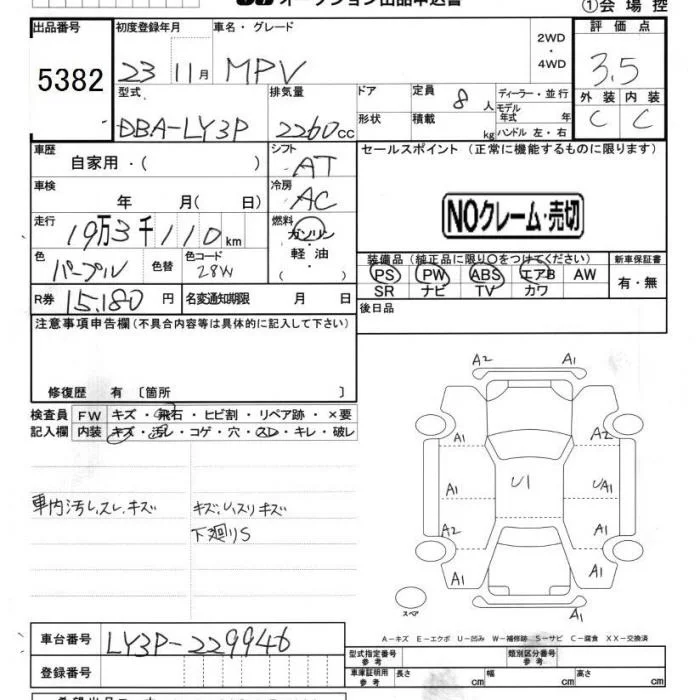 オークション出品申込書
①会場控
出品番号 初度登録年月 車名・グレード 評価点
5382 23 11月 MPV 2WD・4WD 3.5
型式 排気量 ドア 定員 8人 ディーラー・並行 外装 内装
DBA-LY3P 2260cc 形状 積載 kg モデル年式 年 ハンドル 左・右 C C
車歴 シフト セールスポイント(正常に機能するものに限ります)
自家用・( ) AT
車検 冷房
年 月( 日) AC
NOクレーム・売切
走行 燃料
19万3千110km ガソリン・軽油・( )
色 色替 色コード 装備品(純正品に限り○をつけてください) 新車保証書
パープル 28W PS PW ABS エアB AW 有・無
SR ナビ TV カワ
R券 15,180円 名変通知期限 月 日 後日品
注意事項申告欄(不具合内容等は具体的に記入して下さい)
修復歴 有〔箇所 〕
検査員 FW キズ・飛石・ヒビ割・リペア跡・×要
記入欄 内装 キズ・汚レ・コゲ・穴・スレ・キレ・破レ
A2 A1
A1 A2
A1 U1 UA1
A2 A1
A1 A1
A1
スペア
車内汚レスレ、キズ キズ、U、スリキズ
下廻りS
A-キズ E-エクボ U-凹み W-補修跡 S-サビ C-腐食 XX-交換済
車台番号 LY3P-229946
型式指定番号 参考 類別区分番号 参考
登録番号 車庫証明用 参考 長さ cm 幅 cm 高さ cm